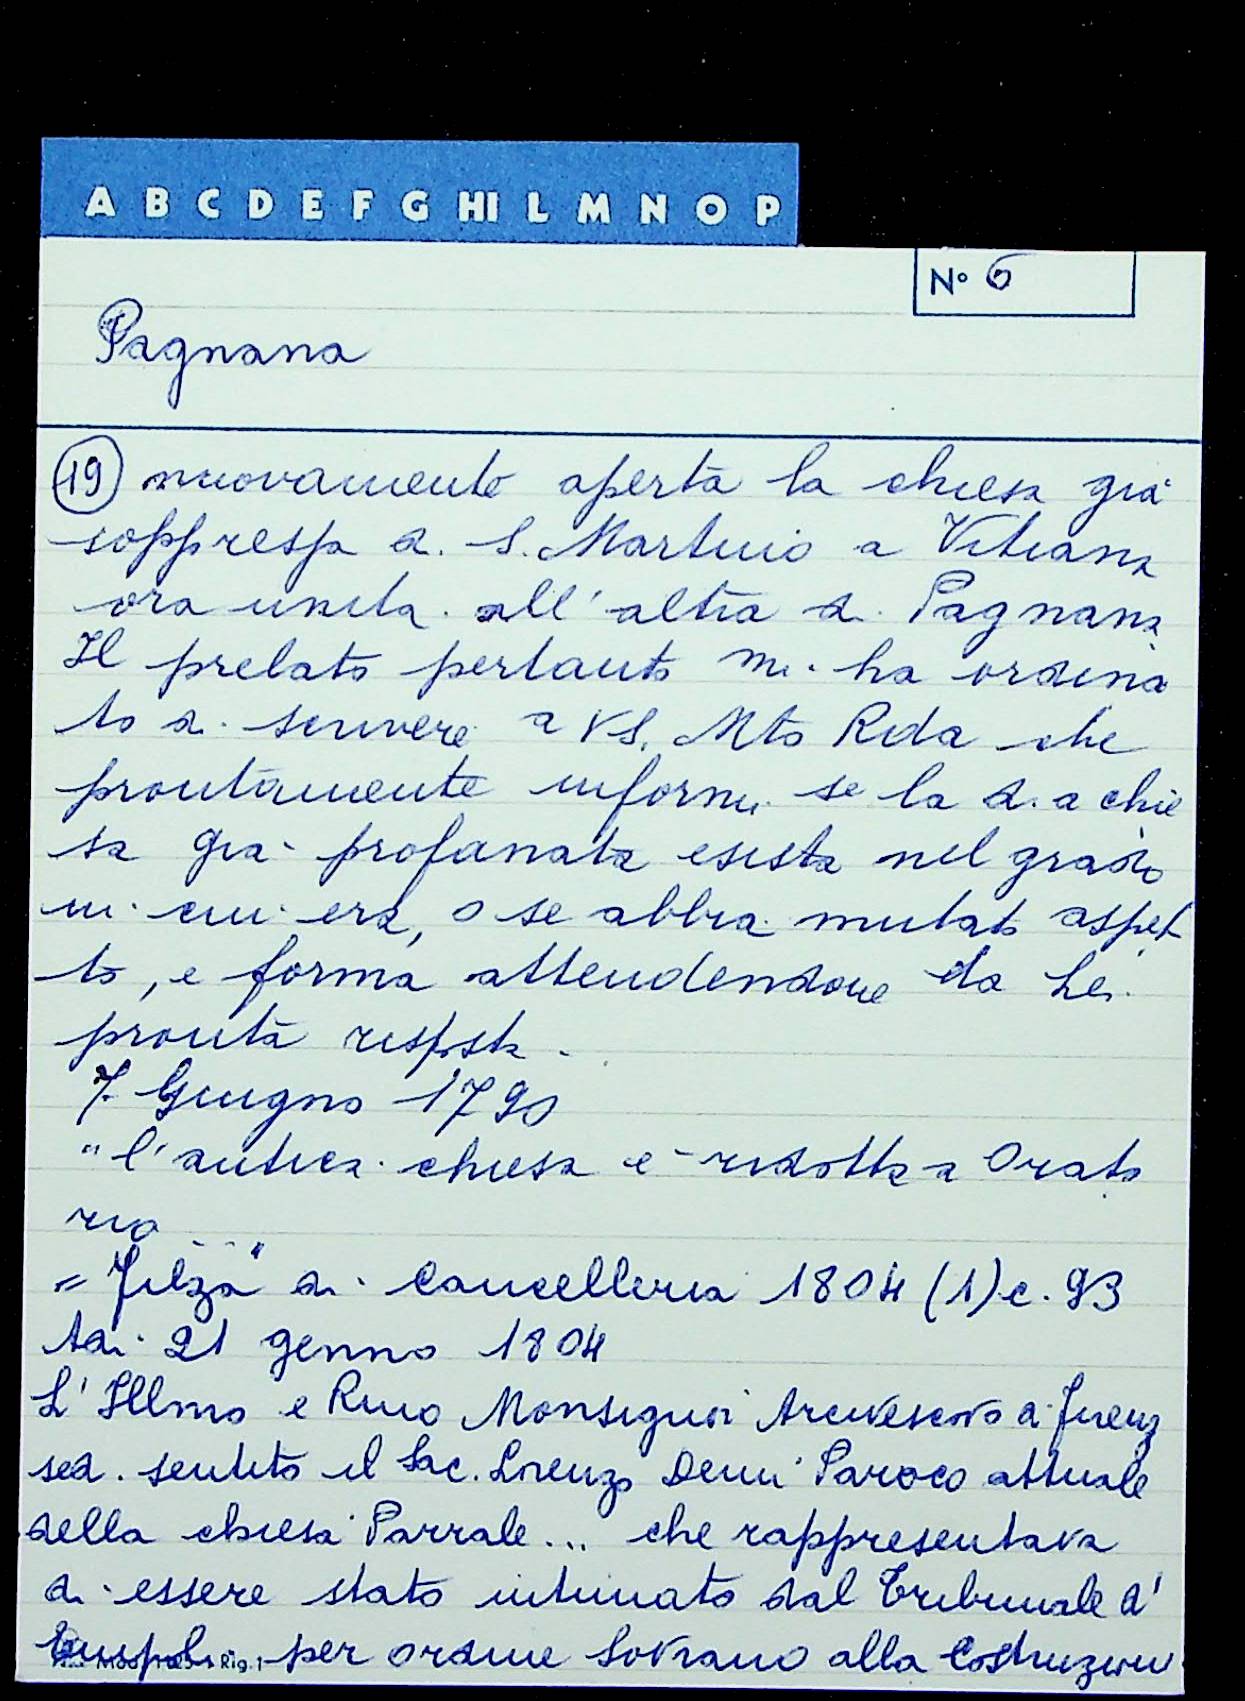 A B C D E F G HI L M N O P
N° 6
Pagnana
19 nuovamente aperta la chiesa già
soppressa di S. Martino a Vitiana
ora unita all'altra di Pagnana
Il prelato pertanto mi ha ordina
to di scrivere a VS. Mto Rda che
prontamente informi se la d.a chie
sa già profanata esista nel grado
in cui era, o se abbia mutato aspet
to, e forma attendendone da Lei
pronta risposta.
7 Giugno 1790
"l'antica chiesa è ridotta a Orato
rio ..."
= Filza di Cancelleria 1804 (1) c. 93
21 genno 1804
L'Illmo e Rmo Monsignor Arcivescovo di Firenz
sed. sentito il Sac. Lorenzo Paroco attuale
della chiesa Parrale ... che rappresentava
di essere stato intimato dal Tribunale d'
Empoli per ordine Sovrano alla Costruzion
Rig. 1